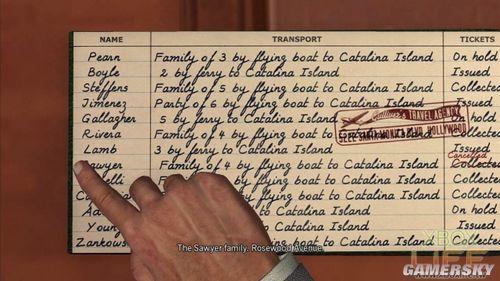 NAME TRANSPORT TICKETS
Pearn Family of 3 by flying boat to Catalina Island On hold
Boyle 2 by ferry to Catalina Island Issued
Steffens Family of 5 by flying boat to Catalina Island Collected
Jimenez Party of 6 by flying boat to Catalina Island Collected
Gallagher 5 by ferry to Catalina Island On hold
Rivera Family of 4 by flying boat to Catalina Island Collected
Lamb 3 by ferry to Catalina Island Issued
Cancelled
awyer Family of 4 by flying boat to Catalina Island Collected
elli Family of by flying boat to Catalina Island Collected
by ferry to Catalina Island Collected
Ad to Catalina Island On hold
Young to Catalina Island Issued
Zankows boat to Catalina Island Collected
TRAVEL AGENCY
SANTA MONICA BLVD. HOLLYWOOD
The Sawyer family. Rosewood Avenue.
XBOX
LIFE
GAMERSKY